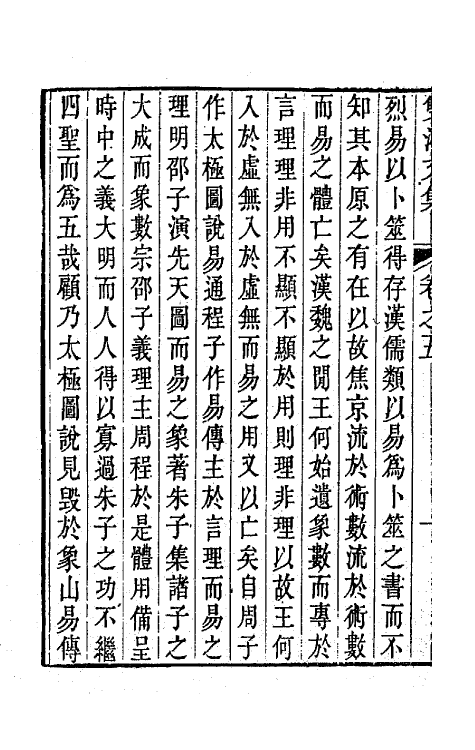 卷之五
烈易以卜筮得存漢儒類以易爲卜筮之書而不
知其本原之有在以故焦京流於術數流於術數
而易之體亡矣漢魏之閒王何始遺象數而專於
言理理非用不顯不顯於用則理非理以故王何
入於虛無入於虛無而易之用又以亡矣自周子
作太極圖說易通程子作易傳主於言理而易之
理明邵子演先天圖而易之象著朱子集諸子之
大成而象數宗邵子義理主周程於是體用備呈
時中之義大明而人人得以寡過朱子之功不繼
四聖而爲五哉顧乃太極圖說見毀於象山易傳